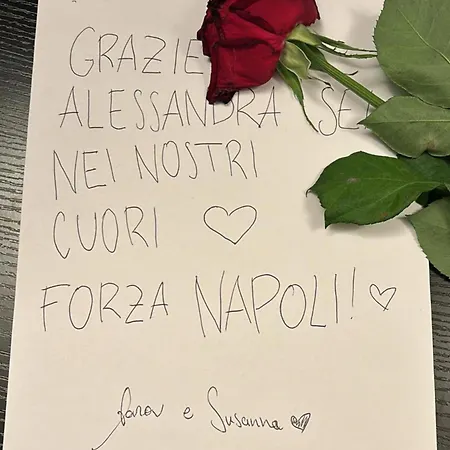 GRAZIE
ALESSANDRA SEI
NEI NOSTRI
CUORI
FORZA NAPOLI!
Sara e Susanna